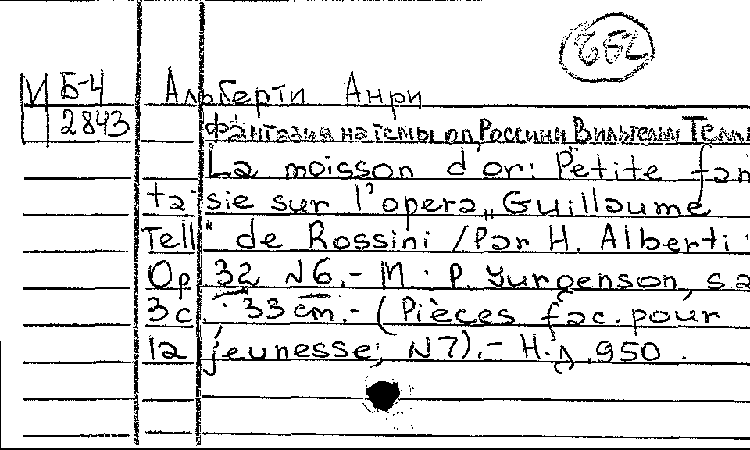 И Б-4 Альберти Анри
2843 Фантазия на темы оп. Россини Вильгельм Телль
La moisson d'or: Petite fan
taisie sur l'opera „Guillaume
Tell" de Rossini / Par H. Alberti.
Op. 32 N6.- M.: P. Jurgenson, s.a
3c. 33 cm.- (Pièces fac. pour
la jeunesse; N7).- Н.д. 950.